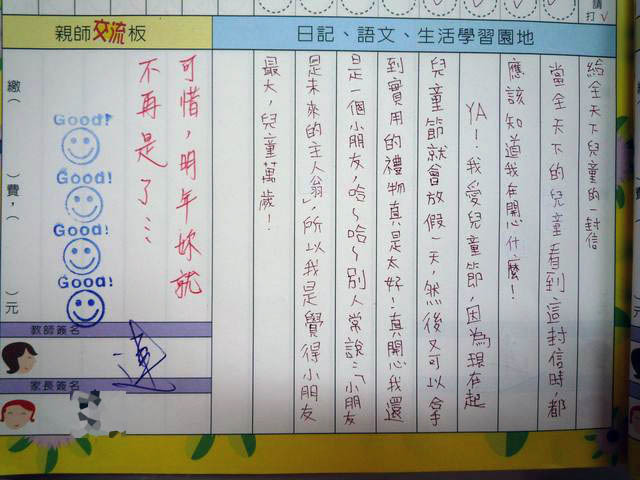 請
打✓
日記、語文、生活學習園地
給全天下兒童的一封信
當全天下的兒童看到這封信時,都
應該知道我在開心什麼!
YA!我愛兒童節,因為現在起
兒童節就會放假一天,然後又可以拿
到實用的禮物真是太好!真開心我還
是一個小朋友,哈~哈~別人常說:「小朋友
是未來的主人翁」,所以我是覺得小朋友
最大,兒童萬歲!
親師交流板
可惜,明年妳就
不再是了…
Good!
Good!
Good!
Good!
繳( )費,( )元
教師簽名
家長簽名